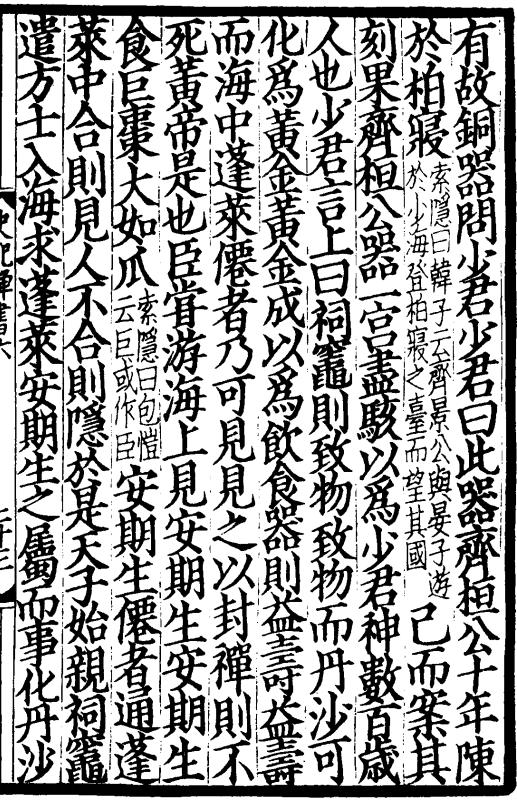 有故銅器問少君少君曰此器齊桓公十年陳
於柏寢索隱曰韓子云齊景公與晏子遊於少海登柏寢之臺而望其國已而案其
刻果齊桓公器一宮盡駭以爲少君神數百歲
人也少君言上曰祠竈則致物致物而丹沙可
化爲黃金黃金成以爲飲食器則益壽益壽
而海中蓬萊僊者乃可見見之以封禪則不
死黃帝是也臣嘗游海上見安期生安期生
食巨棗大如瓜索隱曰包愷云巨或作臣安期生僊者通蓬
萊中合則見人不合則隱於是天子始親祠竈
遣方士入海求蓬萊安期生之屬而事化丹沙